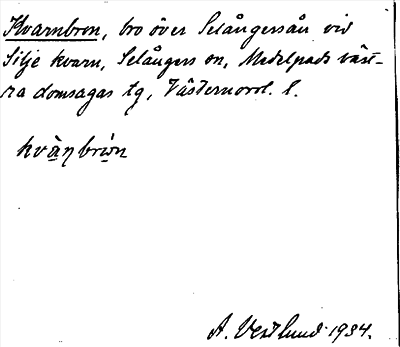 Kvarnbron, bro över Selångersån vid
Silje kvarn, Selångers sn, Medelpads väst-
ra domsagas tg, Västernorrl. l.
kvàṇbròn
A. Vestlund 1934.